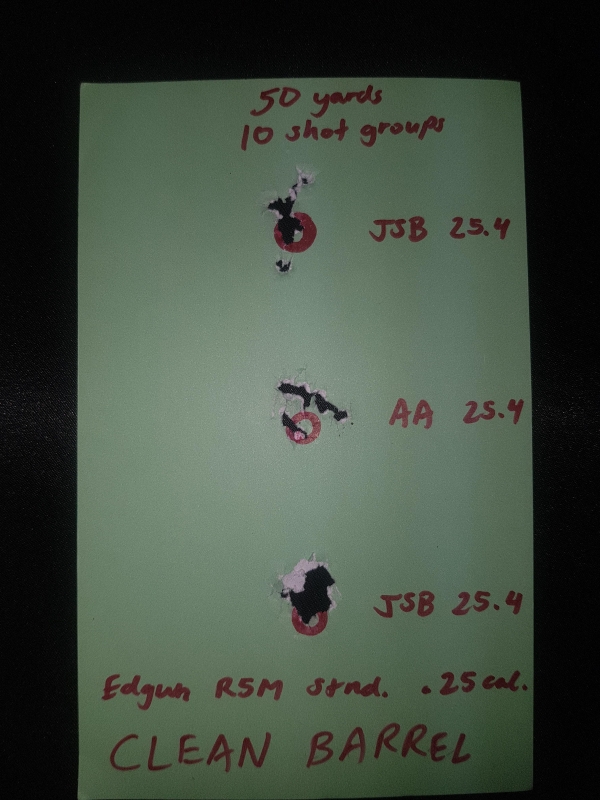 50 yards
10 shot groups
JSB 25.4
AA 25.4
JSB 25.4
Edgun R5M stnd. .25 cal.
CLEAN BARREL